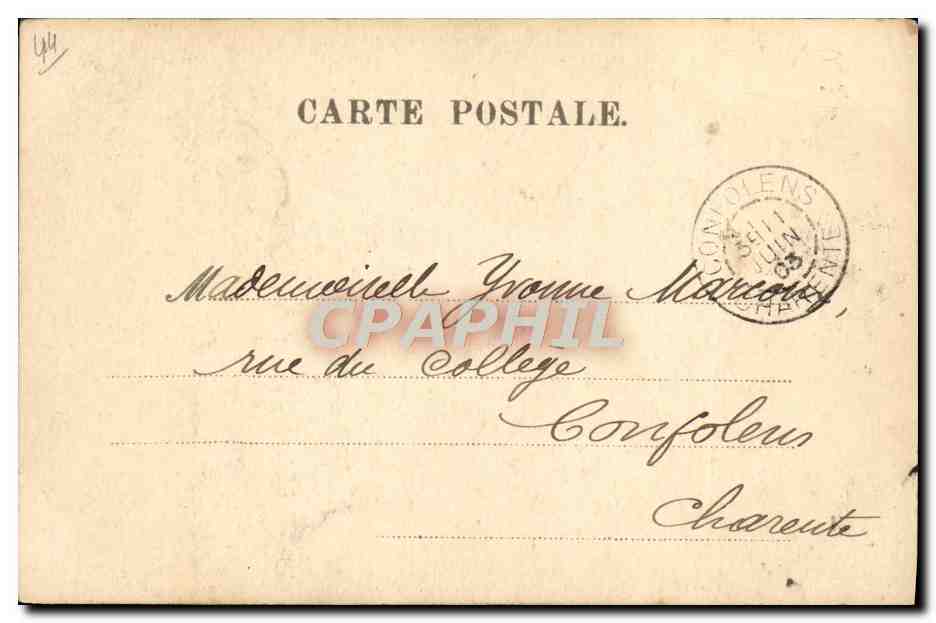 44
CARTE POSTALE.
CONFOLENS
11
JUIN
03
CHARENTE
Mademoiselle Yvonne Marcoux,
CPAPHIL
rue du Collège
Confolens
Charente